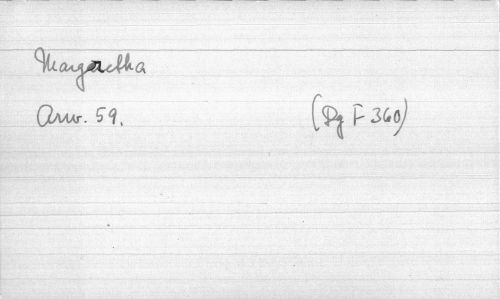 Margaretha
Arw. 59. (Dg F 360)